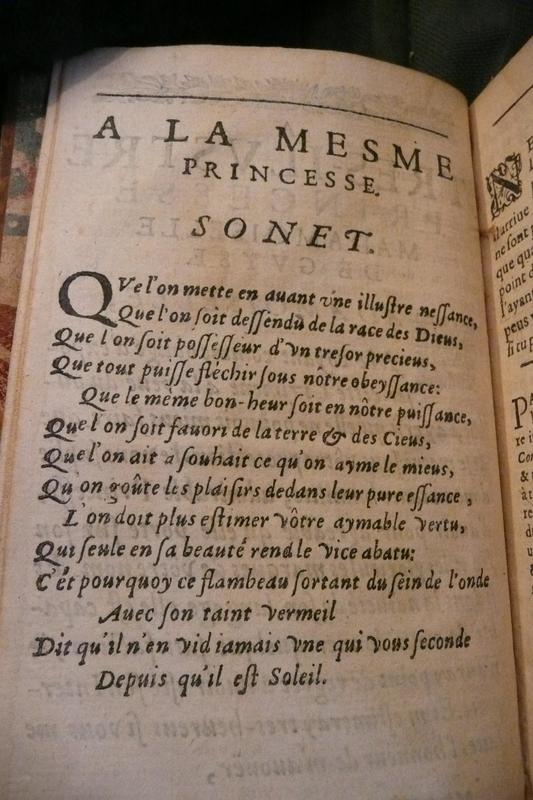 A LA MESME
PRINCESSE.
SONET.
QVe l'on mette en auant vne illuſtre neſſance,
Que l'on ſoit deſſendu de la race des Dieus,
Que l'on ſoit poſſeſſeur d'vn treſor precieus,
Que tout puiſſe fléchir ſous nôtre obeyſſance:
Que le même bon-heur ſoit en nôtre puiſſance,
Que l'on ſoit fauori de la terre & des Cieus,
Que l'on ait a ſouhait ce qu'on ayme le mieus,
Qu'on goûte les plaiſirs dedans leur pure eſſance,
L'on doit plus eſtimer vôtre aymable vertu,
Qui ſeule en ſa beauté rend le vice abatu:
C'ét pourquoy ce flambeau ſortant du ſein de l'onde
Auec ſon taint vermeil
Dit qu'il n'en vid iamais vne qui vous ſeconde
Depuis qu'il eſt Soleil.